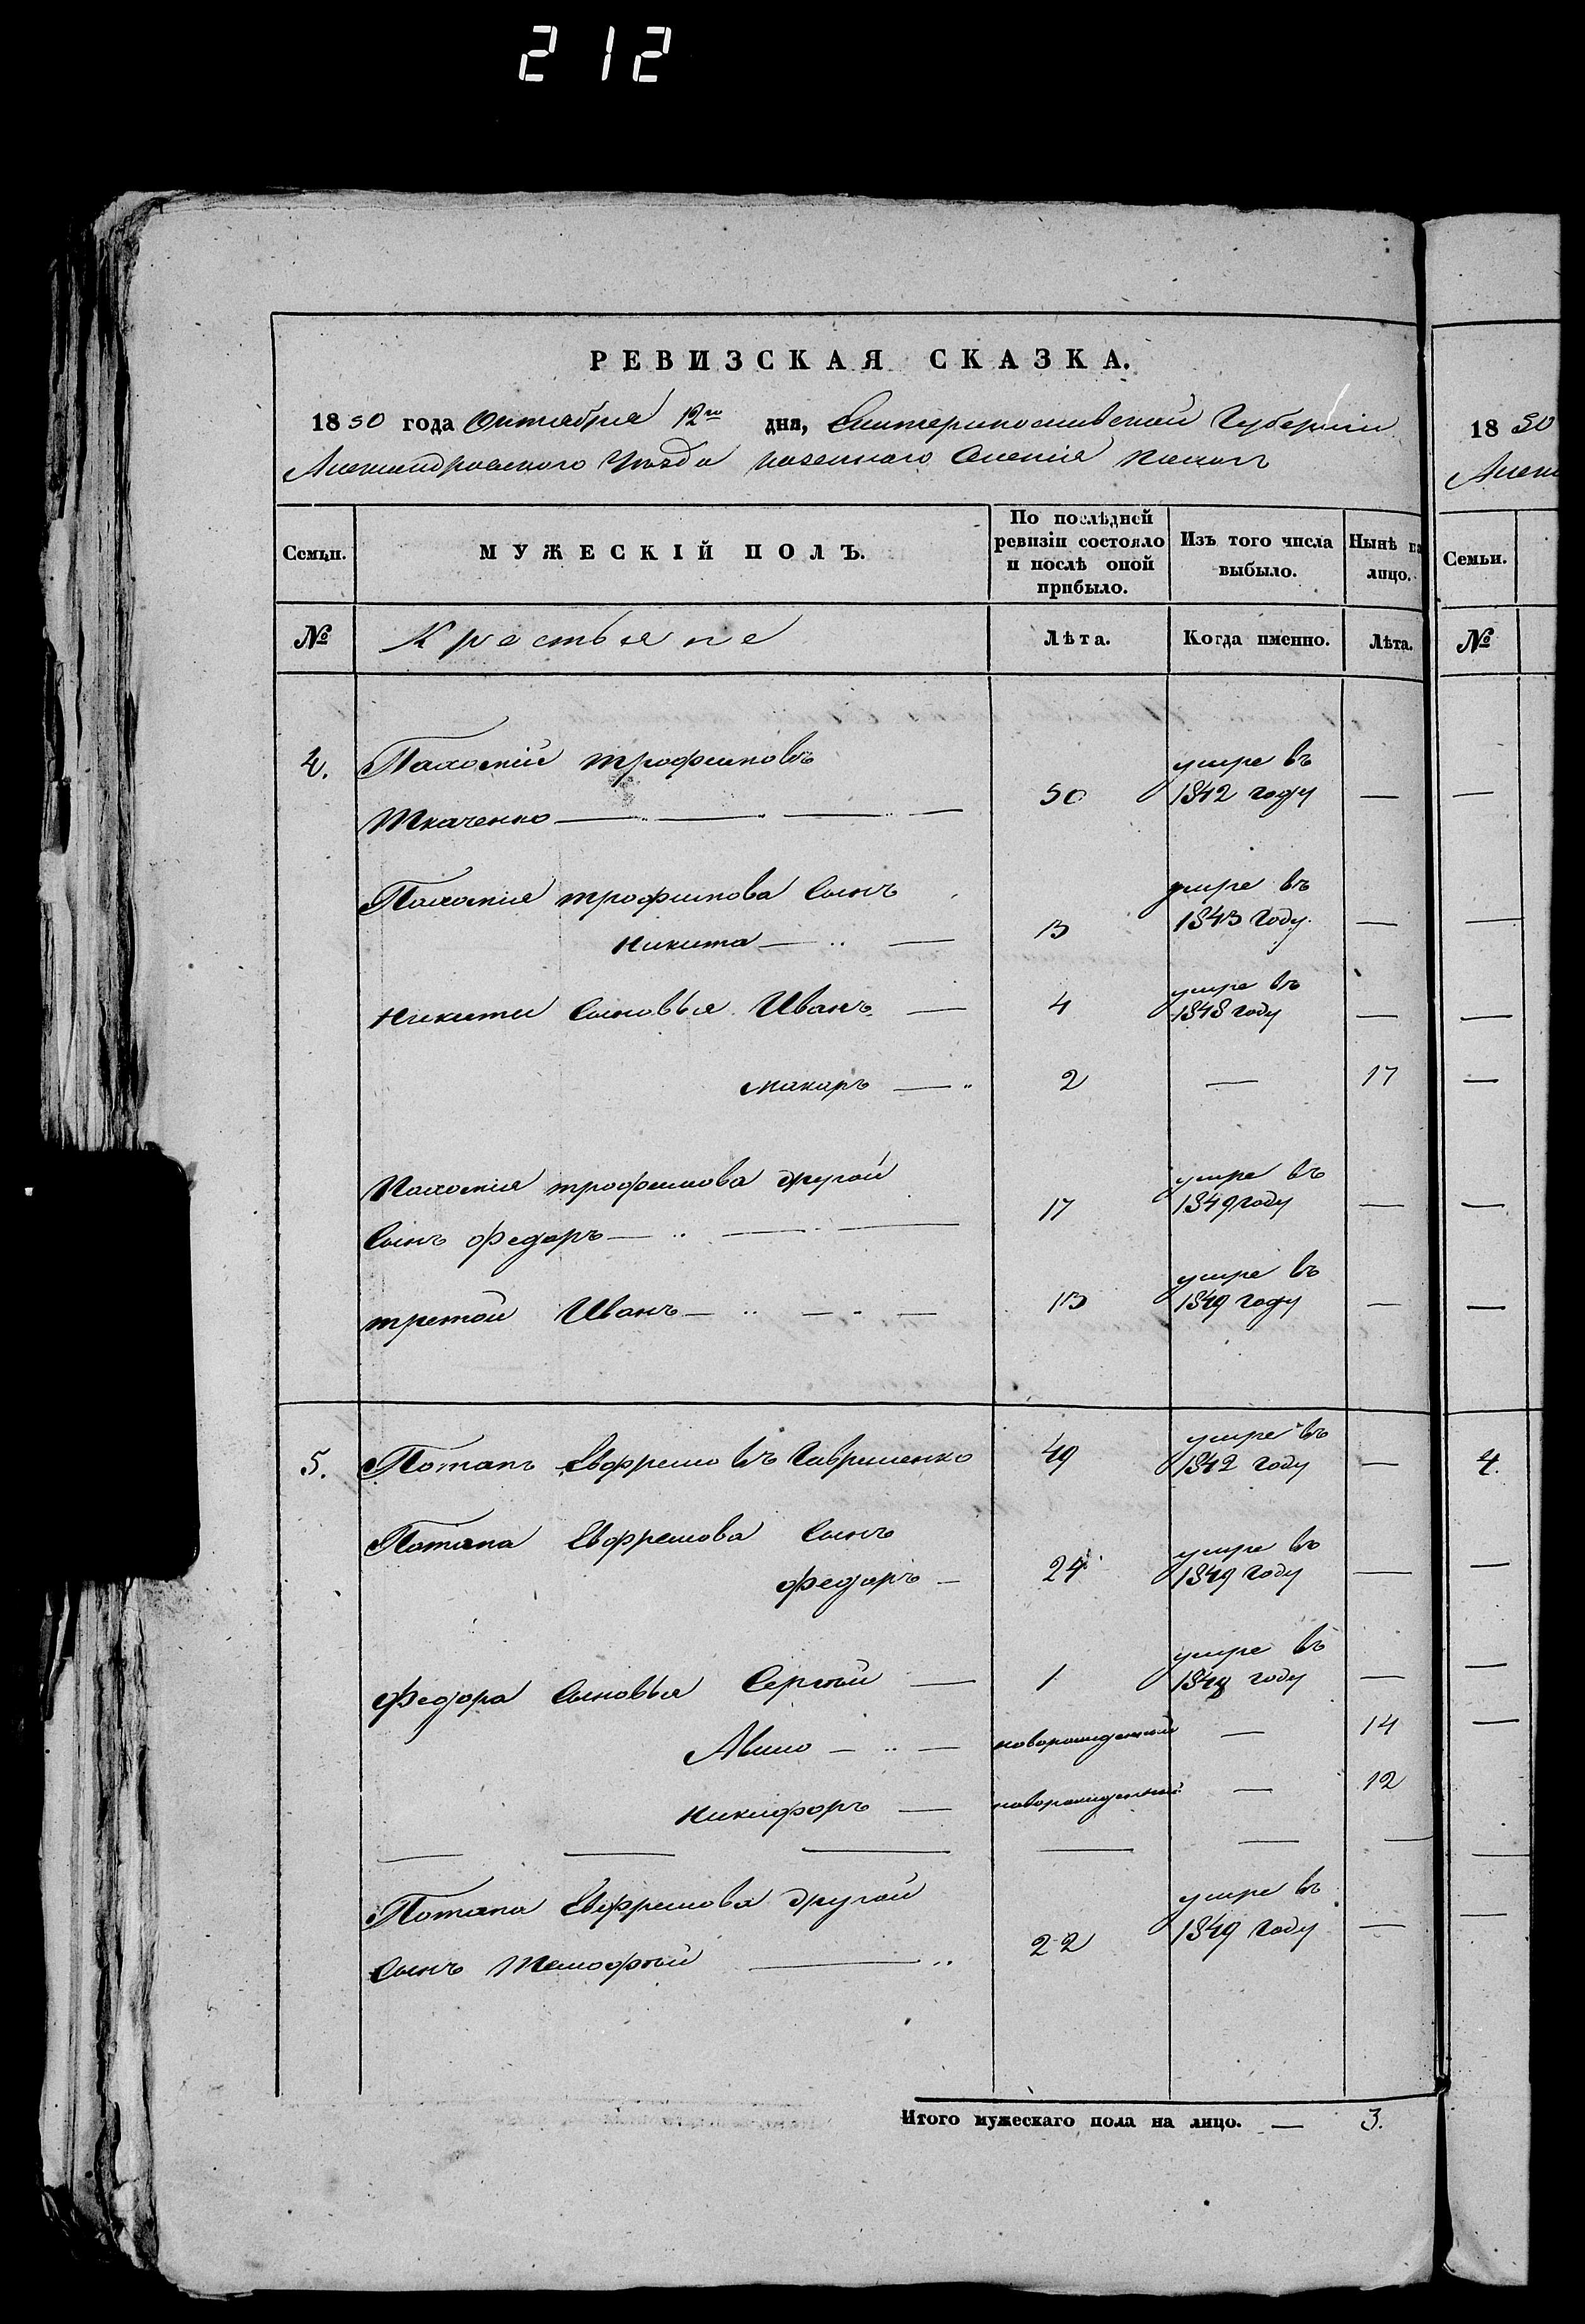 212
РЕВИЗСКАЯ СКАЗКА.
1850 года Октября 12го дня, Екатеринославской Губерніи
Александровского Уезда казенного Селенія
18 50
Семьи.
МУЖЕСКІЙ ПОЛЪ.
По послѣдней ревизіи состояло и послѣ оной прибыло.
Изъ того числа выбыло.
Нынѣ на лицо.
Семьи.
№
Крестьяне
Лѣта.
Когда именно.
Лѣта.
№
4. Пахомій трофимовъ умре въ
Ткаченко — 50 1842 году — —
Пахомія трофимова Сынъ умре въ
Никита — 13 1843 году — —
Никиты Сыновья Иванъ — 4 умре въ 1848 году — —
макаръ — 2 — 17 —
Пахомія трофимова другой умре въ
Сынъ Федоръ — 17 1849 году — —
третой Иванъ — 13 умре въ 1849 году — —
5. Потапъ Евфремовъ Гавриленко 49 умре въ 1842 году — 4.
Потапа Евфремова Сынъ умре въ
Федоръ — 24 1849 году — —
Федора Сыновья Сергей — 1 умре въ 1848 году — —
новорожденный — 14 —
Никифоръ — новорожденный — 12
Потапа Евфремова другой умре въ
Сынъ Тимофей — 22 1849 году — —
Итого мужескаго пола на лицо. — 3.